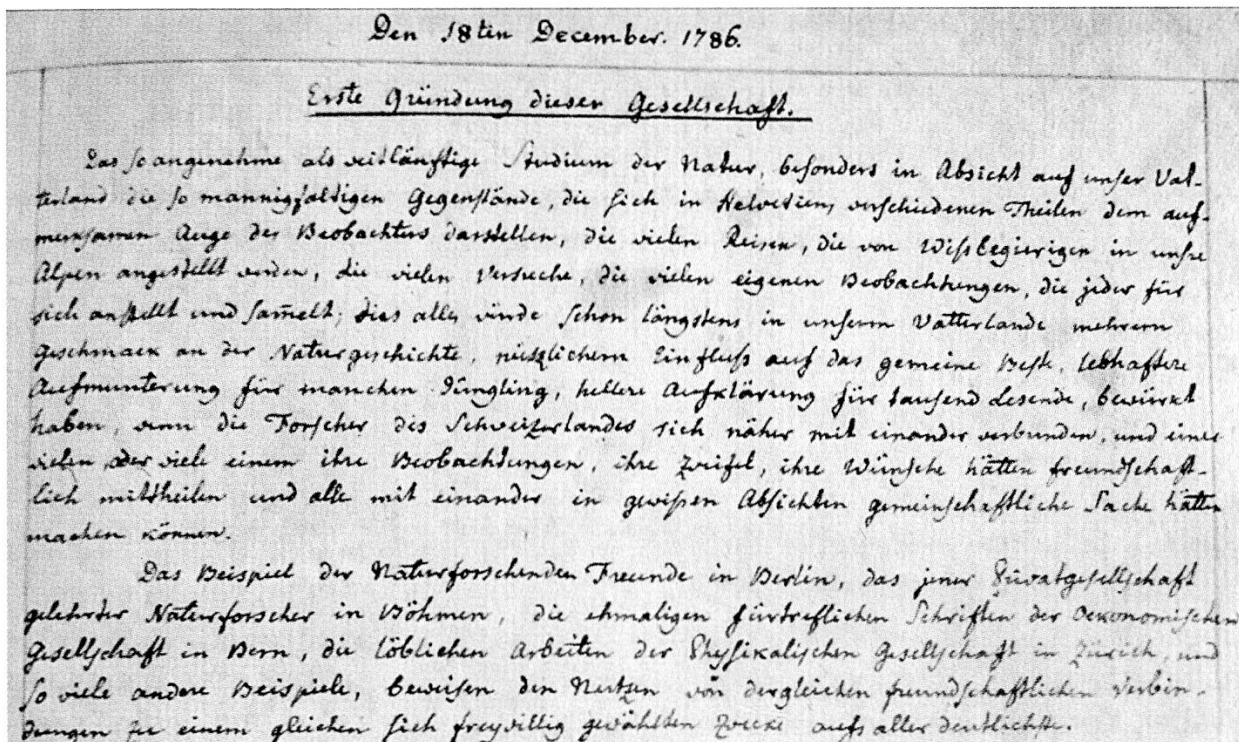 Den 18ten December. 1786.
Erste Gründung dieser Gesellschaft.
Das so angenehme als weitläuftige Studium der Natur, besonders in Absicht auf unser Vat-
terland die so mannigfaltigen Gegenstände, die sich in Helvetiens verschiedenen Theilen dem auf-
merksamen Auge des Beobachters darstellen, die vielen Reisen, die von Wißbegierigen in unsre
Alpen angestellt werden, die vielen Versuche, die vielen eigenen Beobachtungen, die jeder für
sich anstellt und sam̅elt; dies alles würde schon längstens in unserm Vatterlande mehrern
Geschmack an der Naturgeschichte, nützlichern Einfluß auf das gemeine Beste, lebhaftere
Aufmunterung für manchen Jüngling, hellere Aufklärung für tausend Lesende, bewürkt
haben, wenn die Forscher des Schweizerlandes sich näher mit einander verbunden, und einer
vielen oder viele einem ihre Beobachtungen, ihre Zweifel, ihre Wünsche hätten freundschaft-
lich mittheilen und alle mit einander in gewißen Absichten gemeinschaftliche Sache hätten
machen können.
Das Beispiel der Naturforschenden Freunde in Berlin, das jener Privatgesellschaft
gelehrter Naturforscher in Böhmen, die ehmaligen fürtreflichen Schriften der Oekonomischen
Gesellschaft in Bern, die löblichen Arbeiten der Physikalischen Gesellschaft in Zürich, und
so viele andere Beispiele, beweisen den Nutzen von dergleichen freundschaftlichen Verbin-
dungen zu einem gleichen sich freywillig gewählten Zwecke aufs aller deutlichste.